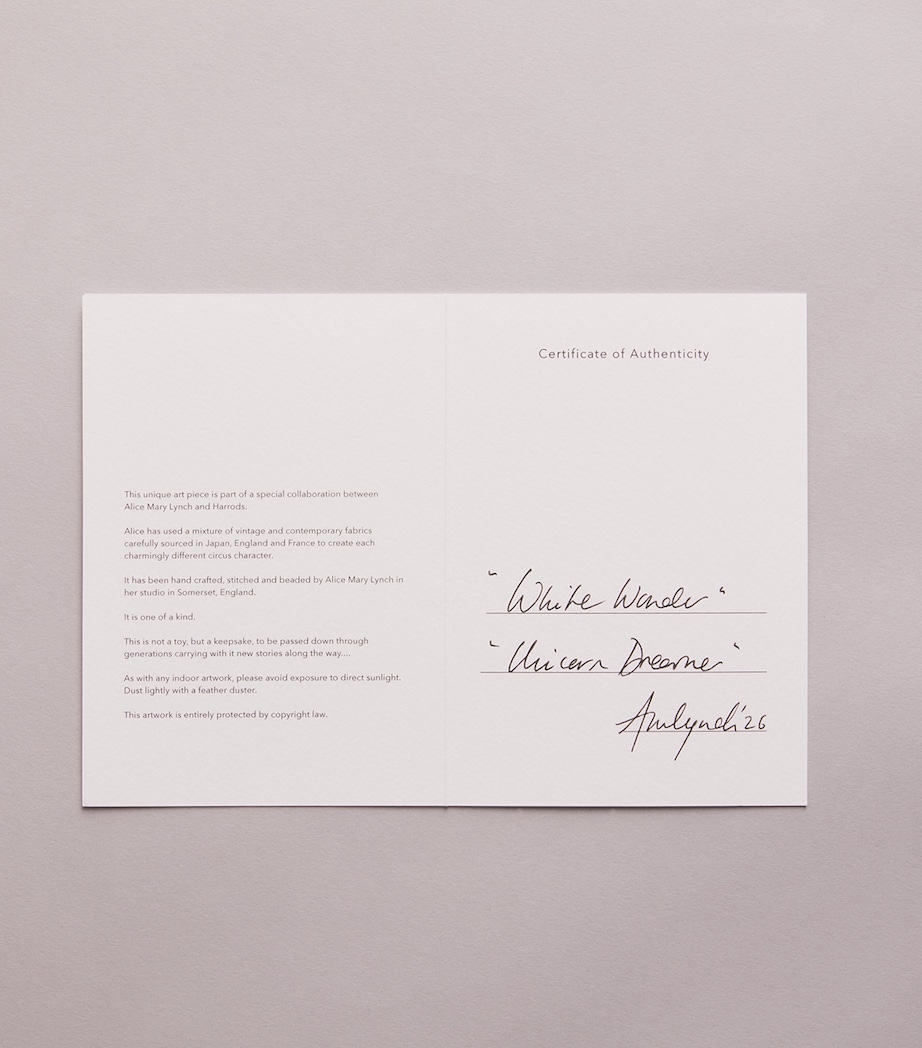 This unique art piece is part of a special collaboration between
Alice Mary Lynch and Harrods.
Alice has used a mixture of vintage and contemporary fabrics
carefully sourced in Japan, England and France to create each
charmingly different circus character.
It has been hand crafted, stitched and beaded by Alice Mary Lynch in
her studio in Somerset, England.
It is one of a kind.
This is not a toy, but a keepsake, to be passed down through
generations carrying with it new stories along the way....
As with any indoor artwork, please avoid exposure to direct sunlight.
Dust lightly with a feather duster.
This artwork is entirely protected by copyright law.
Certificate of Authenticity
"White Wonder"
"Unicorn Dreamer"
AmLynch '26